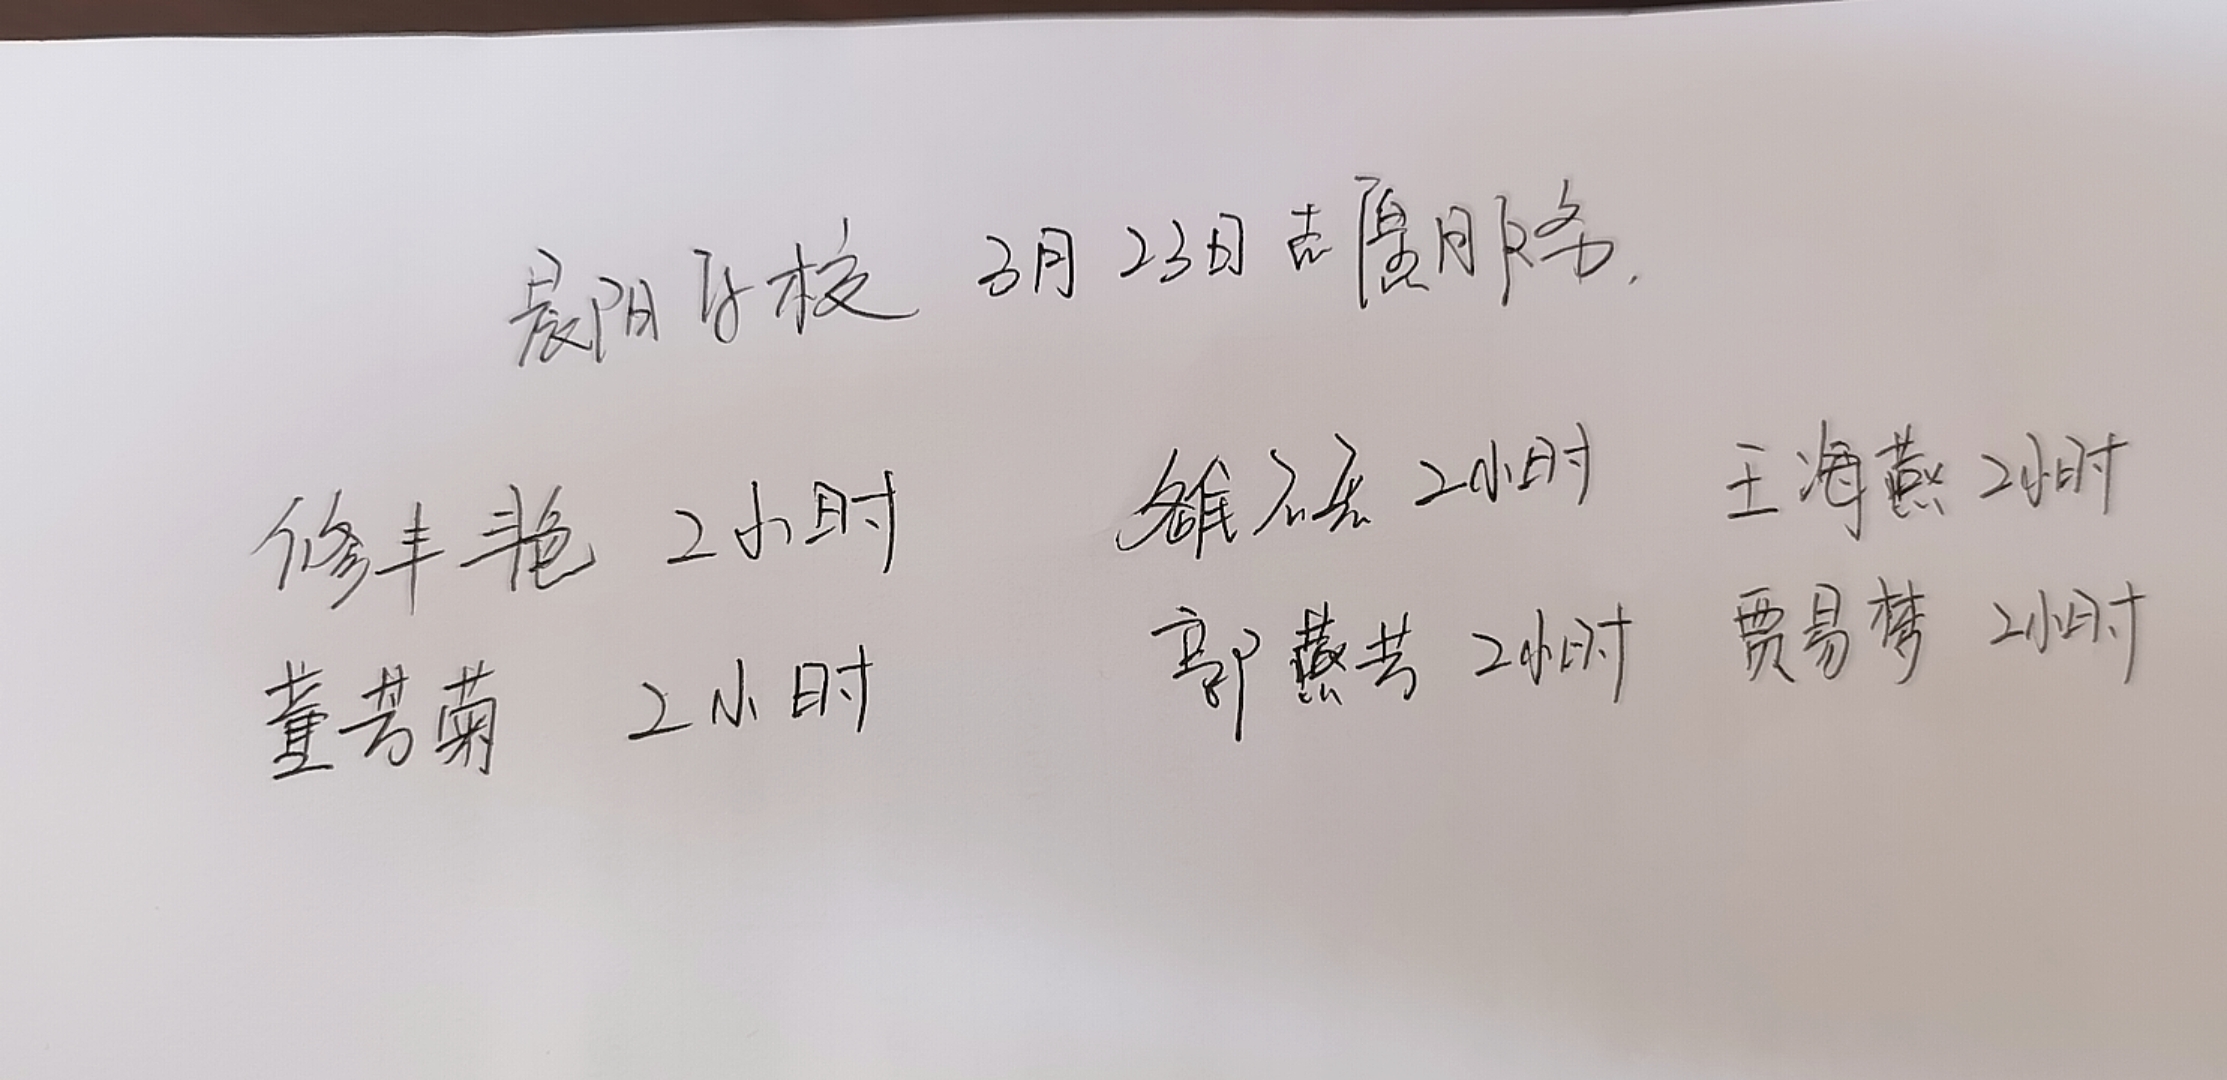 晨阳学校 3月23日志愿服务.
修丰艳 2小时 雒 2小时 王海燕 2小时
董芳菊 2小时 郭燕芳 2小时 贾易梦 2小时